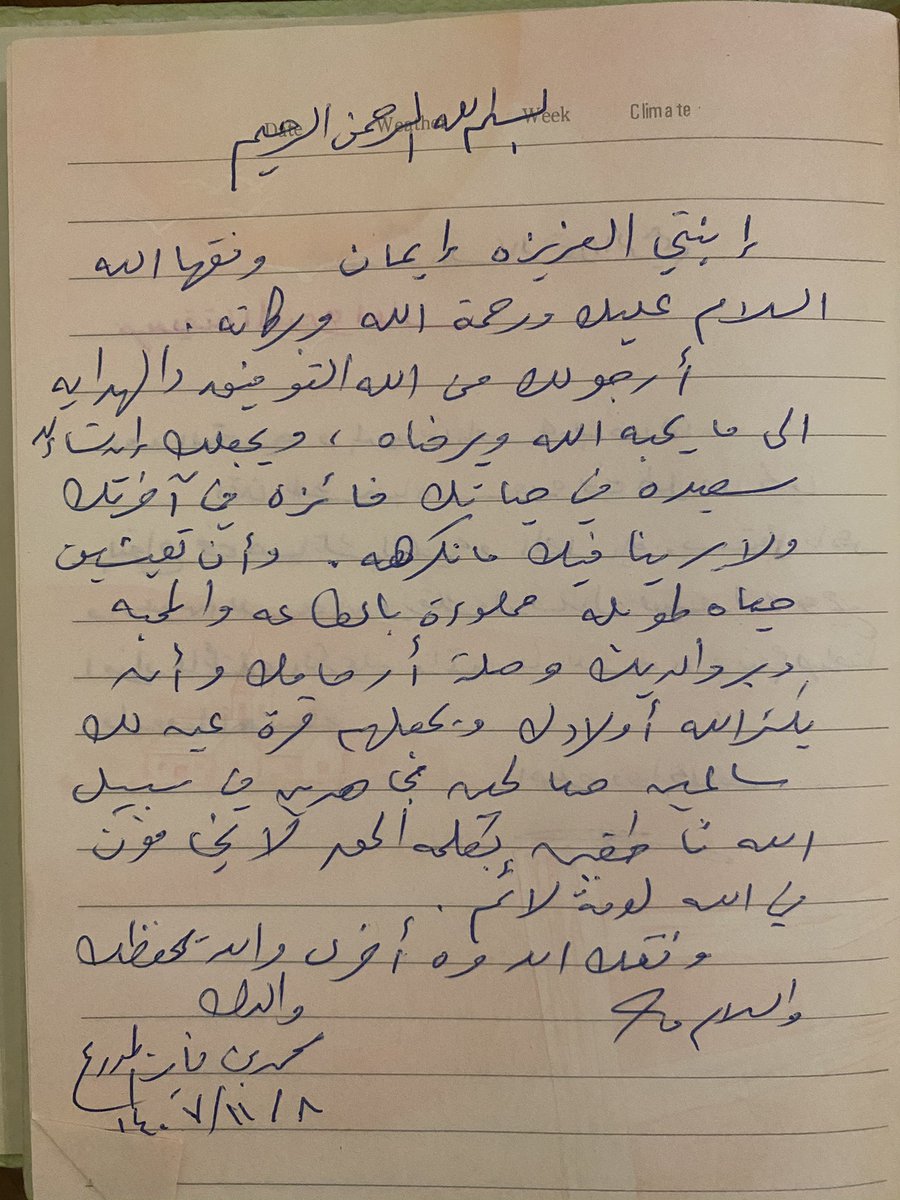 Date Weather Week Climate
بسم الله الرحمن الرحيم
إبنتي العزيزه إيمان وفقها الله
السلام عليك ورحمة الله وبركاته.
أرجو لك من الله التوفيق والهدايه
الى ما يحبه الله ويرضاه، ويجعلك إن شاء الله
سعيده في حياتك فائزه في آخرتك
ولا يرينا فيك ما نكرهه. وأن تعيشين
حياه طويله مملوءة بالطاعه والمحبه
وبر والديك وصلة أرحامك وأن
يكثر الله أولادك ويجعلهم قرة عين لك
سالمين صالحين مجاهدين في سبيل
الله ناطقين بكلمه الحق لا يخافون
في الله لومة لائم.
وفقك الله مره أخرى والله يحفظك
والسلام
والدك
محمد بن
١٤٠٧/١١/٨